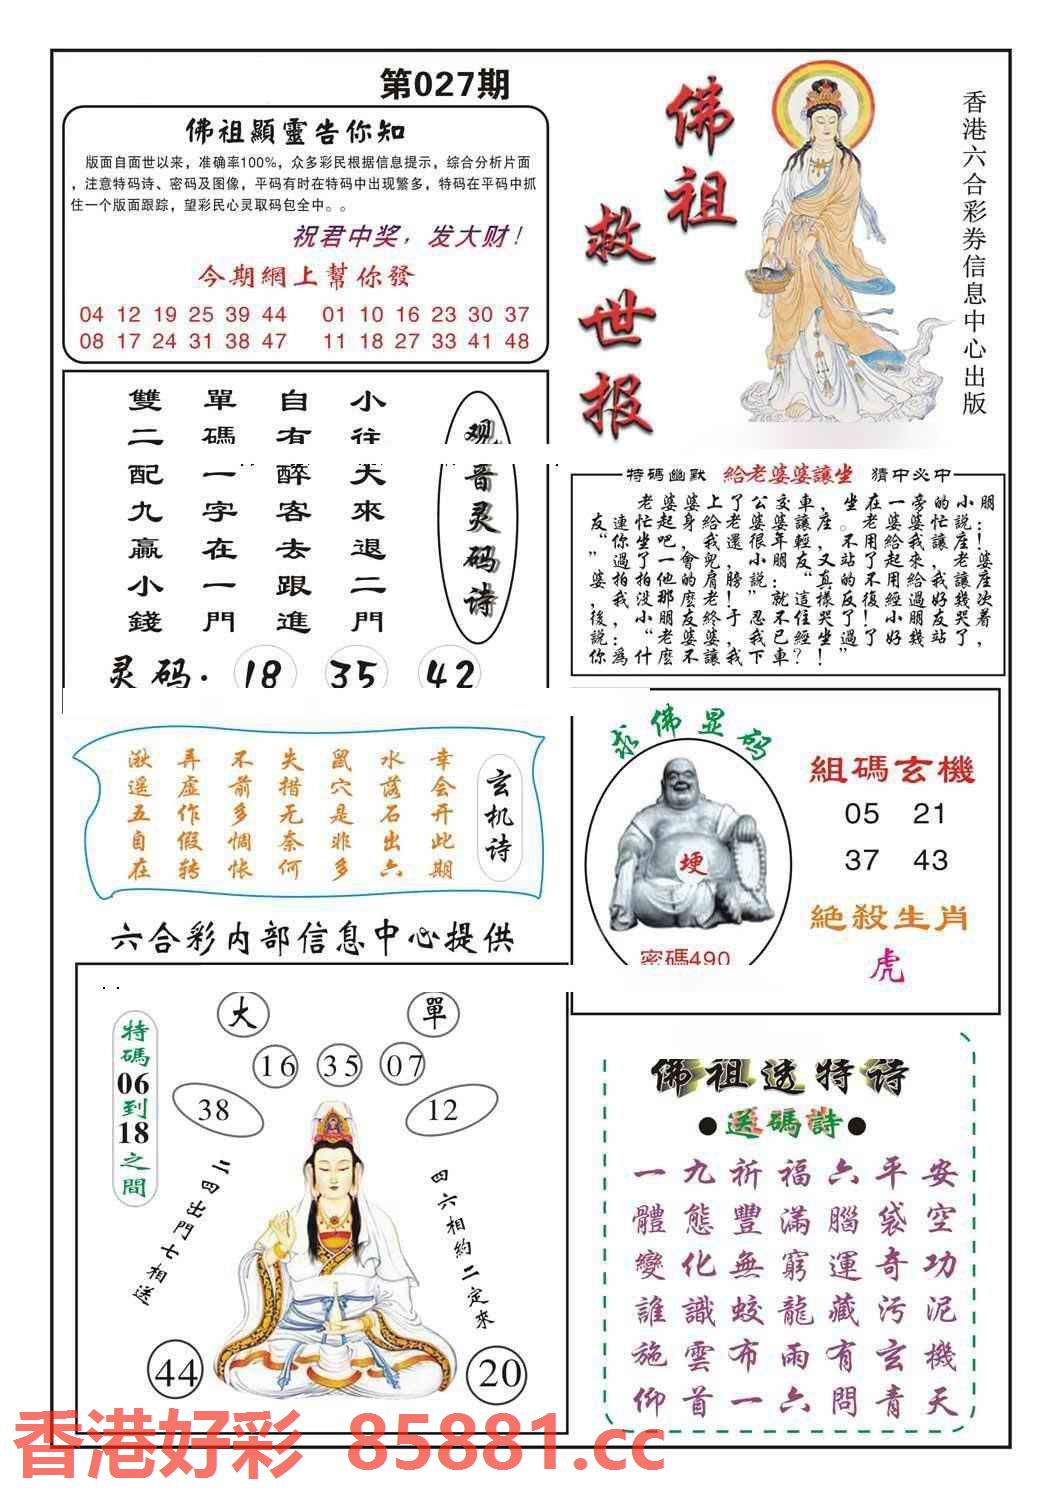 第027期
佛祖顯靈告你知
版面自面世以来，准确率100%，众多彩民根据信息提示，综合分析片面
，注意特码诗、密码及图像，平码有时在特码中出现繁多，特码在平码中抓
住一个版面跟踪，望彩民心灵取码包全中。。
祝君中奖，发大财！
今期網上幫你發
04 12 19 25 39 44 01 10 16 23 30 37
08 17 24 31 38 47 11 18 27 33 41 48
佛祖
救世报
香港六合彩券信息中心出版
观音灵码诗
小往大來退二門
自有醉客去跟進
單碼一字在一門
雙二配九贏小錢
灵码· 18 35 42
特碼幽默 給老婆婆讓坐 猜中必中
老婆婆上了公交車，坐在一旁的小朋
友連忙起身給老婆婆讓座。老婆婆忙説：
“你坐吧，我還很年輕，不用給我讓座！
”過了一會兒，小朋友又站了起來，老婆
婆拍拍他的肩膀説：“真的不用給我讓座
，我没那麽老！”就這樣反復經過好幾次
後，小朋友終于忍不住哭了！小朋友哭着
説：“老婆婆，我已經坐過了好幾站了，
你爲什麽不讓我下車？！”
玄机诗
幸会开此期
水落石出六
鼠穴是非多
失措无奈何
不前多惆怅
弄虚作假转
湫遥五自在
求佛显码
埂
密碼490
組碼玄機
05 21
37 43
絶殺生肖
虎
六合彩内部信息中心提供
大 單
特碼06到18之間
16 35 07
38 12
二四出門七相送
四六相約二定來
44 20
佛祖透特诗
●送碼詩●
一九祈福六平安
體態豐滿腦袋空
變化無窮運奇功
誰識蛟龍藏污泥
施雲布雨有玄機
仰首一六問青天
香港好彩 85881.cc